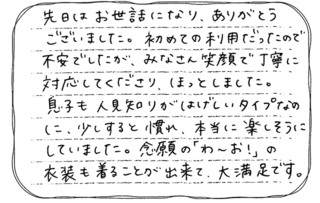 先日はお世話になり、ありがとう
ございました。初めての利用だったので
不安でしたが、みなさん笑顔で丁寧に
対応してくださり、ほっとしました。
息子も人見知りがはげしいタイプなの
に、少しすると慣れ、本当に楽しそうに
していました。念願の「わ〜お!」の
衣装も着ることが出来て、大満足です。